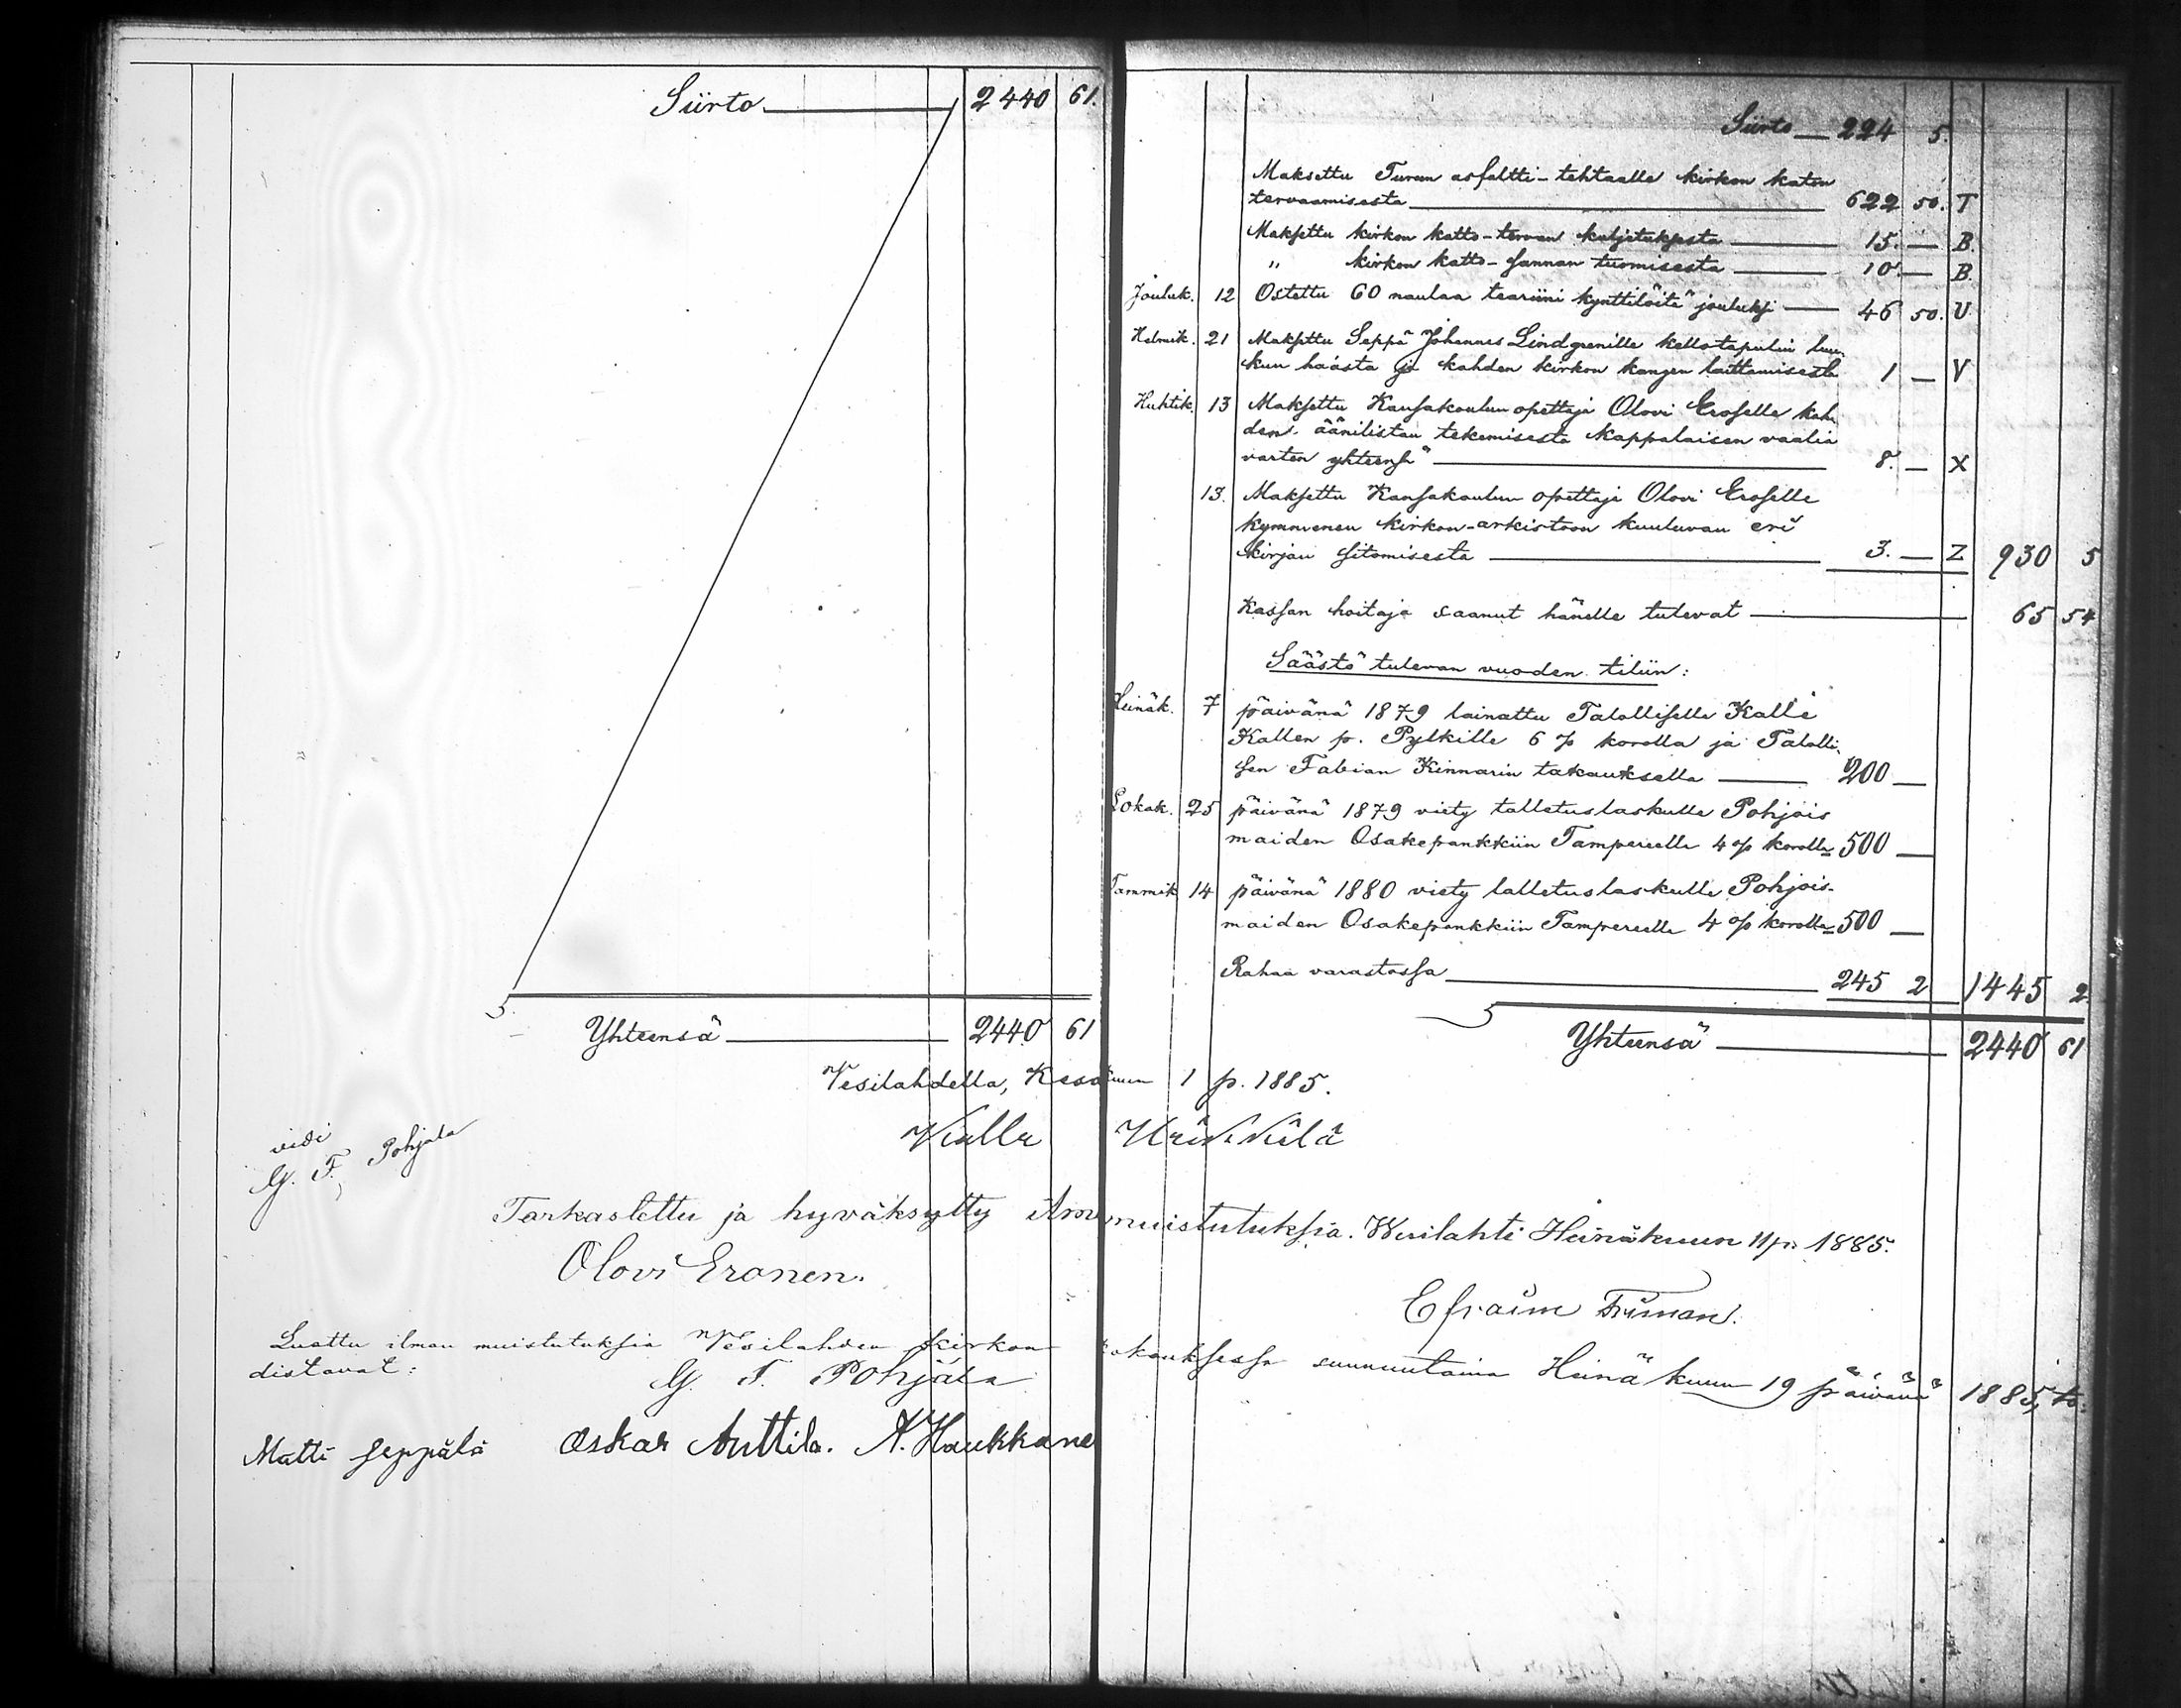 Siirto 2440 61.
Yhteensä 2440 61
Siirto 224 5.
Maksettu Turun asfaltti-tehtaalle kirkon katon
tervaamisesta 622 50. T
Maksettu kirkon katto-tervan kuljetuksesta 15. — B.
" kirkon katto-sannan tuomisesta 10 — B.
Jouluk. 12 Ostettu 60 naulaa teariini kynttilöitä jouluksi 46 50. U
Helmik. 21 Maksettu Seppä Johannes Lindgrenille kellotapulin luu-
kun haásta ja kahden kirkon kangen laittamisesta 1 — V
Huhtik. 13 Maksettu Kansakoulun opettaja Olovi Eroselle kah-
den äänilistan tekemisestä Kappalaisen vaalia
varten yhteensä 8. — X
13. Maksettu Kansakoulun opettaja Olovi Eroselle
kymmenen kirkon-arkistoon kuuluvan eri
kirjan sitomisesta 3. — Z 930 5
Kassan hoitaja saanut hänelle tulevat 65 54
Säästö tulevan vuoden tiliin:
Heinäk. 7 päivänä 1879 lainattu Talolliselle Kalle
Kallen p. Pylkille 6 % korolla ja Talolli-
sen Fabian Kinnarin takauksella 200 —
Lokak. 25 päivänä 1879 viety talletuslaskulle Pohjois
maiden Osakepankkiin Tampereelle 4 % korolla 500 —
Tammik 14 päivänä 1880 viety talletuslaskulle Pohjois-
maiden Osakepankkiin Tampereelle 4 % korolla 500 —
Rahaa varastossa 245 2 1445 2.
Yhteensä 2440 61
Vesilahdella, Kesäkuun 1 p. 1885.
Kalle
vidi
G. F. Pohjala
Tarkastettu ja hyväksytty ilman muistutuksia. Wesilahti Heinäkuun 11 p. 1885.
Olovi Eronen.
Efraim
Luettu ilman muistutuksia Vesilahden kirkon kokouksessa sunnuntaina Heinäkuun 19 päivänä 1885, to-
distavat:
G. F. Pohjala
Matti Seppälä Oskar Anttila. K. Haukkane